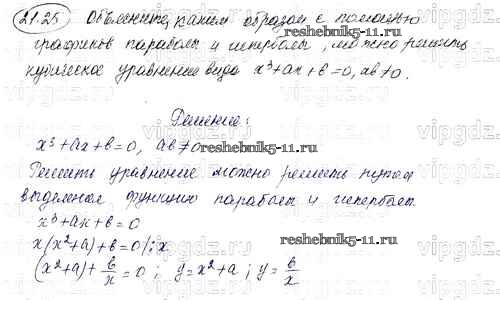 21.25 Объясните, каким образом с помощью
графиков параболы и гиперболы, можно решить
кубическое уравнение вида x³+ax+b=0, ab≠0.
reshebnik5-11.ru
Решение:
x³+ax+b=0, ab≠0
reshebnik5-11.ru
Решить уравнение можно решить путем
выделения функцию параболы и гиперболы
x³+ax+b=0
x(x²+a)+b=0 /:x
reshebnik5-11.ru
(x²+a)+b/x=0; y=x²+a; y=b/x
vipgdz.ru